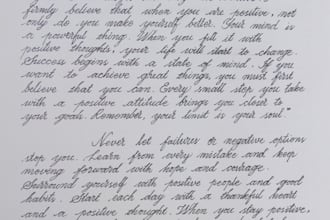 firmly believe that when you are positive, not
only do you make yourself better. Your mind is
a powerful thing. When you fill it with
positive thoughts, your life will start to change.
Success begins with a state of mind. If you
want to achieve great things, you must first
believe that you can. Every small step you take
with a positive attitude brings you closer to
your goals. Remember, your limit is your soul."
Never let failures or negative options
stop you. Learn from every mistake and keep
moving forward with hope and courage.
Surround yourself with positive people and good
habits. Start each day with a thankful heart
and a positive thought. When you stay positive,